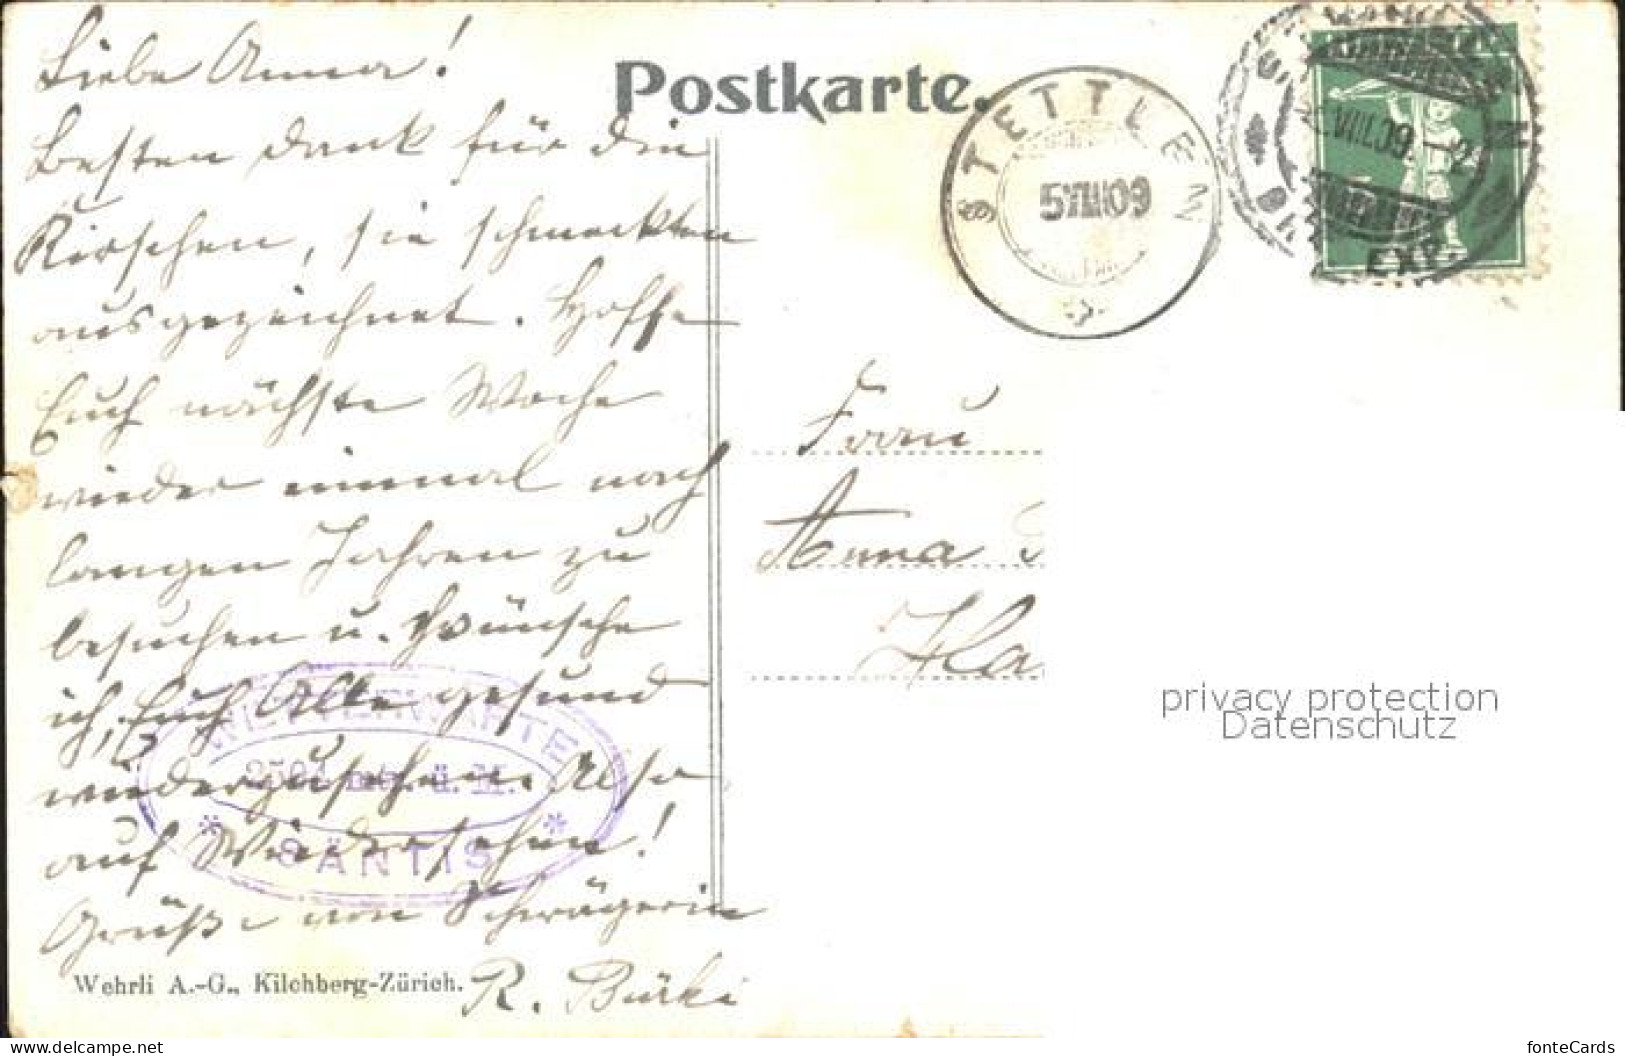 Liebe Anna!
Besten Dank für die
Kirschen, sie schmeckten
ausgezeichnet. Hoffe
Euch nächste Woche
wieder einmal nach
langen Jahren zu
besuchen u. wünsche
ich, Euch Alle gesund
wiederzusehen. Also
auf Wiedersehen!
Grüße von Schwägerin
R. Bürki
Wehrli A.-G., Kilchberg-Zürich.
WETTERWARTE
2504 mtr. ü. M.
* SÄNTIS *
Postkarte.
STETTLEN
5 VIII 09
VIII.09.
EXP.
Frau
Anna
Ha
privacy protection
Datenschutz
www.delcampe.net
fonteCards